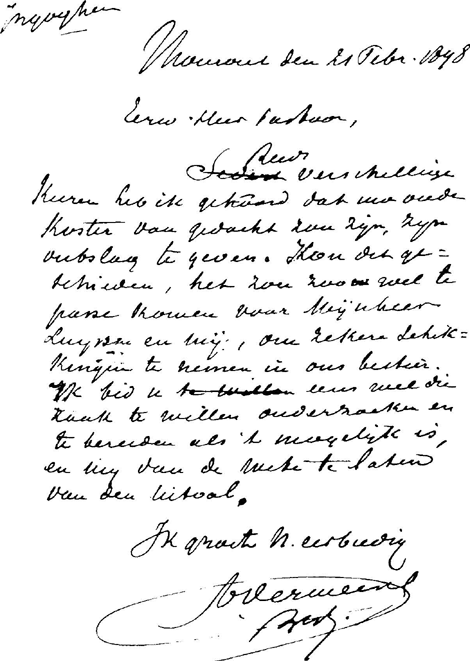 Ingooghem
den 21 Febr. 1898
Eerw. Heer Pastoor,
Reeds
verschellige
Keren heb ik gehoord dat uw oude
Koster van gedacht zou zijn, zijn
ontslag te geven. Kon dit ge=
schieden, het zou zoo wel te
passe komen voor Mijnheer
en mij, om zekere schik=
kingen te nemen in ons bestier.
Ik bid u te willen eens wel die
zaak te willen onderzoeken en
te bereiden als 't mogelijk is,
en mij van de weke te laten
van den uitval.
Ik groet U. eerbiedig